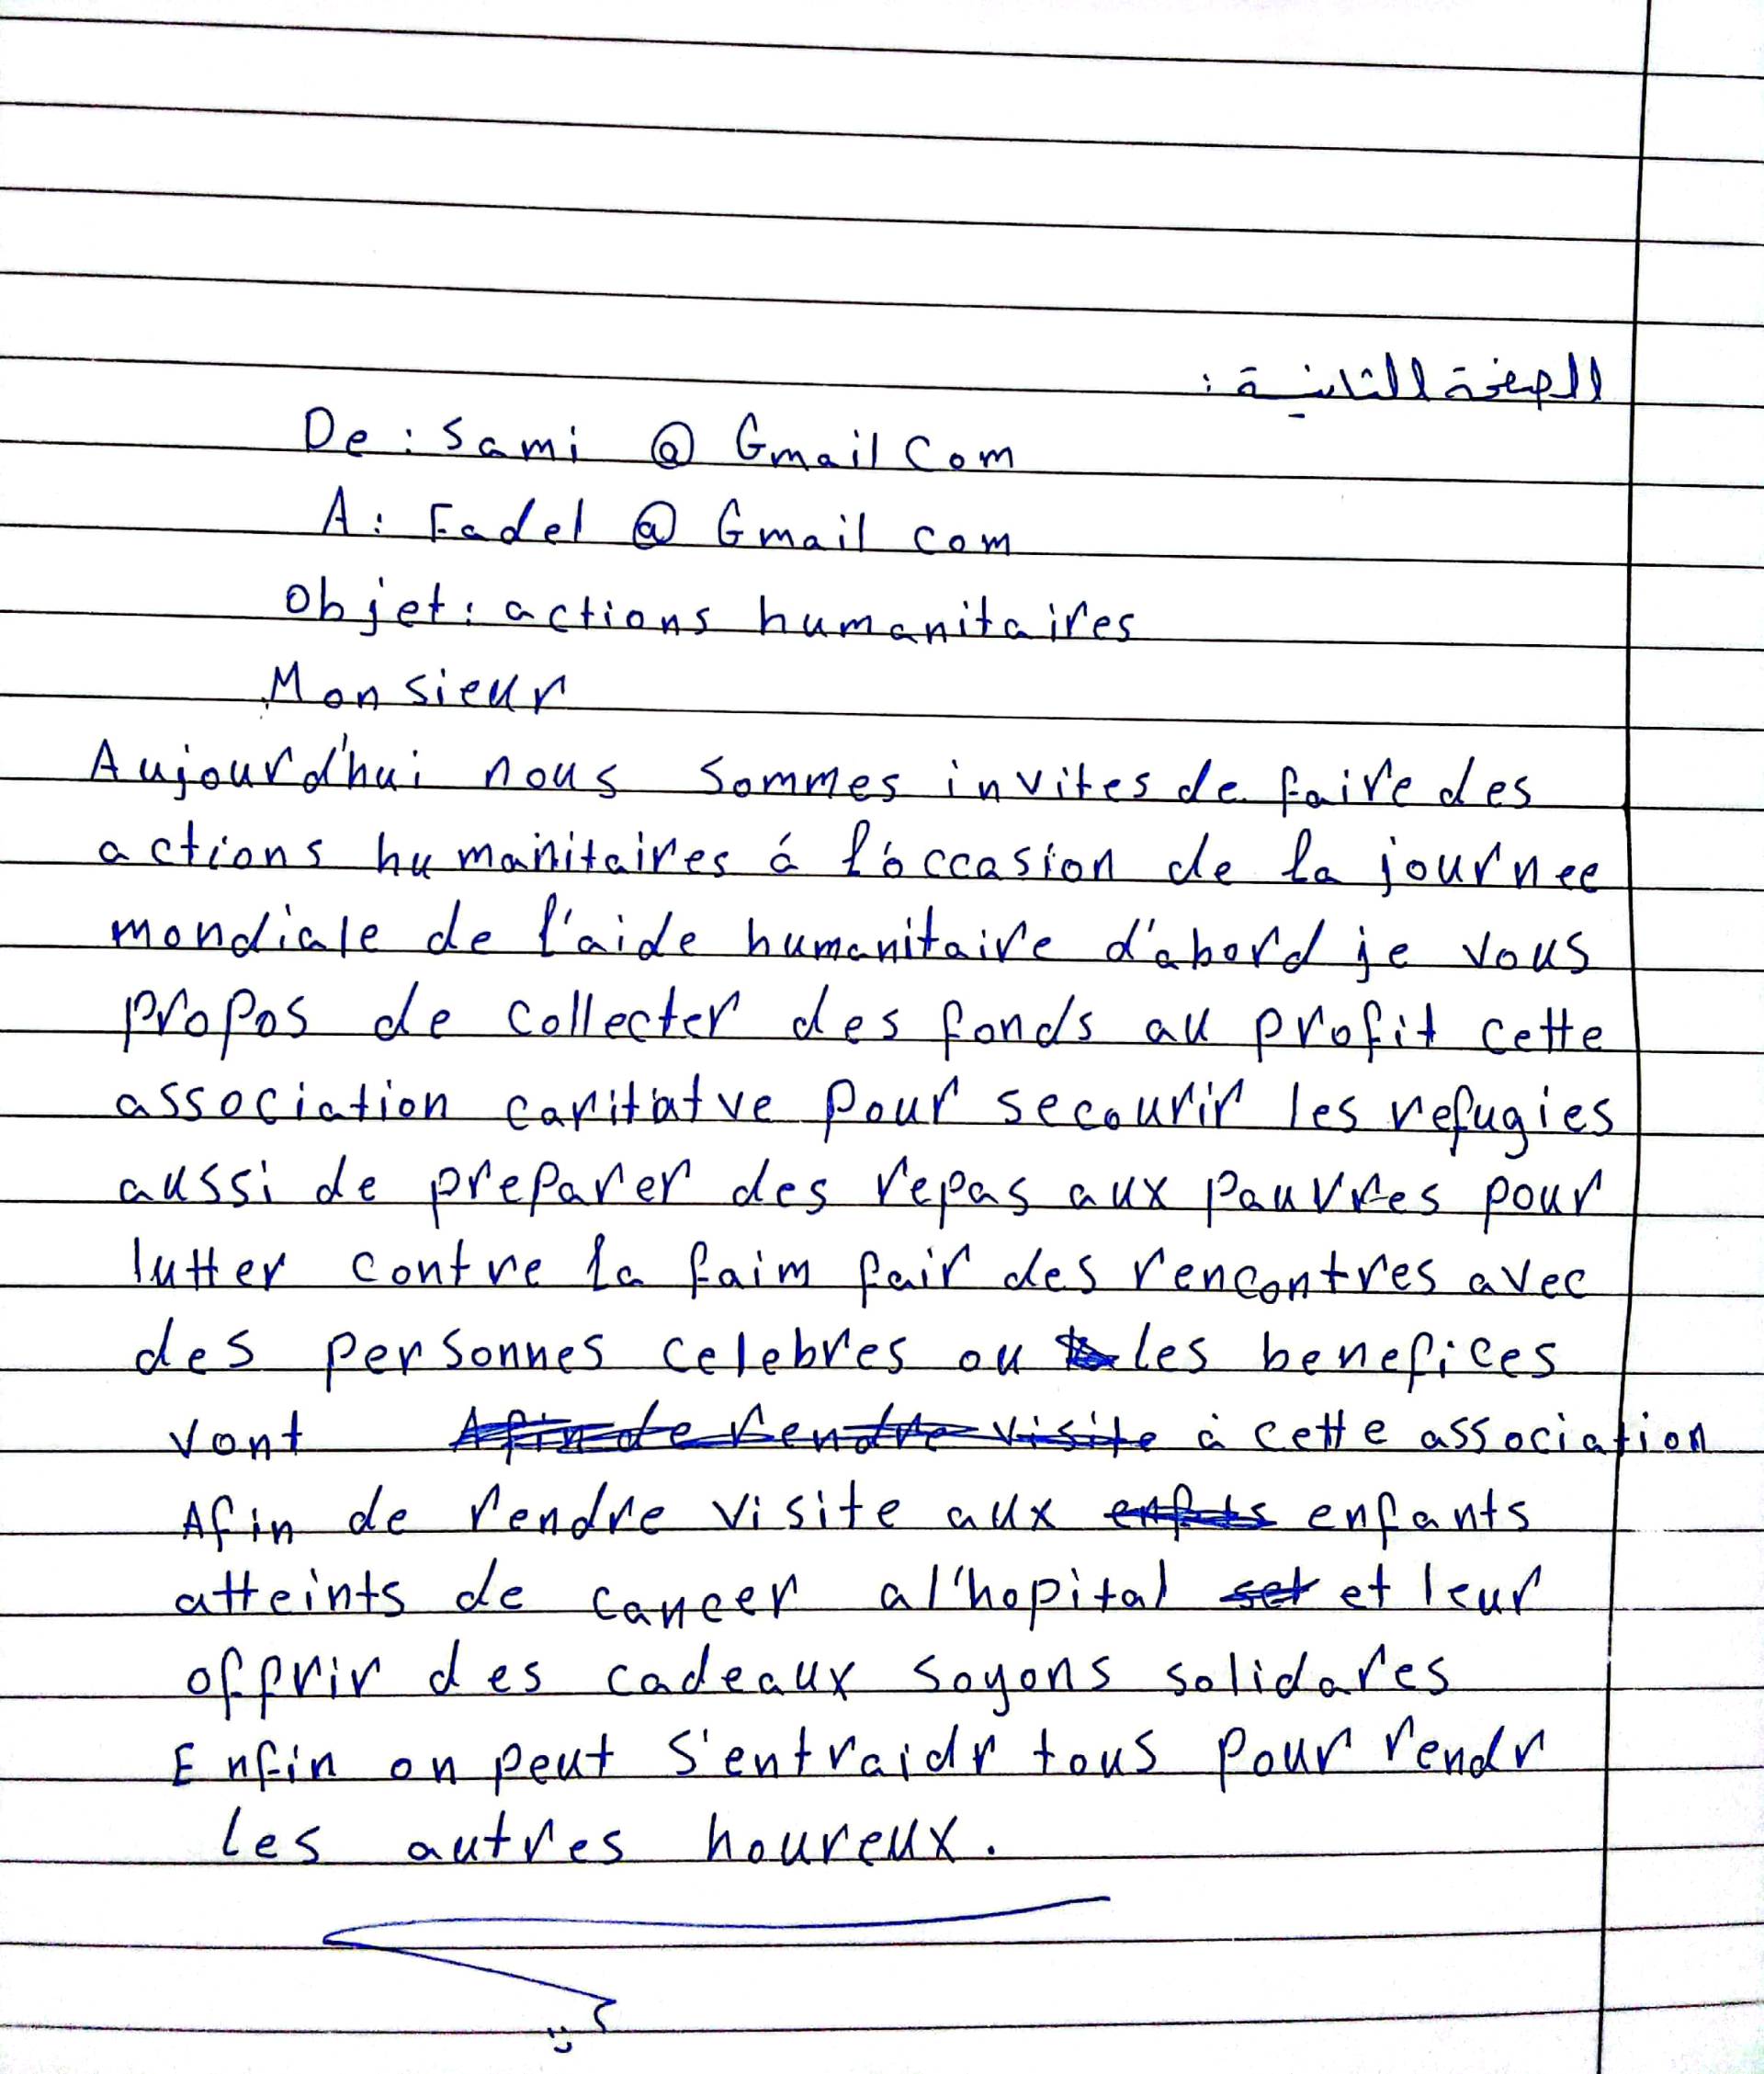 الصفحة الثانية :
De : Sami @ Gmail Com
A : Fadel @ Gmail com
Objet : actions humanitaires
Monsieur
Aujourd'hui nous sommes invites de faire des
actions humanitaires á l'occasion de la journee
mondiale de l'aide humanitaire d'abord je vous
propos de collecter des fonds au profit cette
association caritatve pour secourir les refugies
aussi de preparer des repas aux pauvres pour
lutter contre la faim fair des rencontres avec
des personnes celebres ou les benefices
vont Afin de rendre visite à cette association
Afin de rendre visite aux enfants
atteints de cancer al'hopital et leur
offrir des cadeaux soyons solidares
Enfin on peut s'entraidr tous pour rendr
les autres houreux.